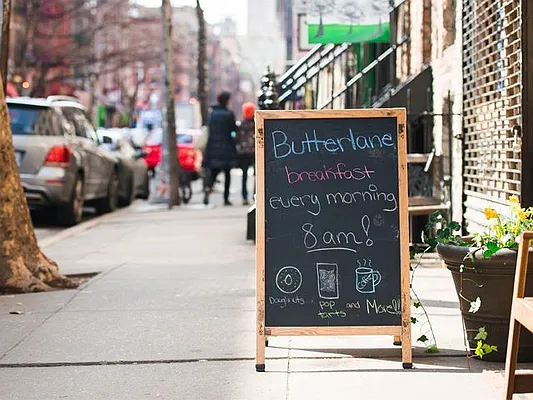 Butterlane
breakfast
every morning
8am!
Doughnuts, pop tarts and More!!